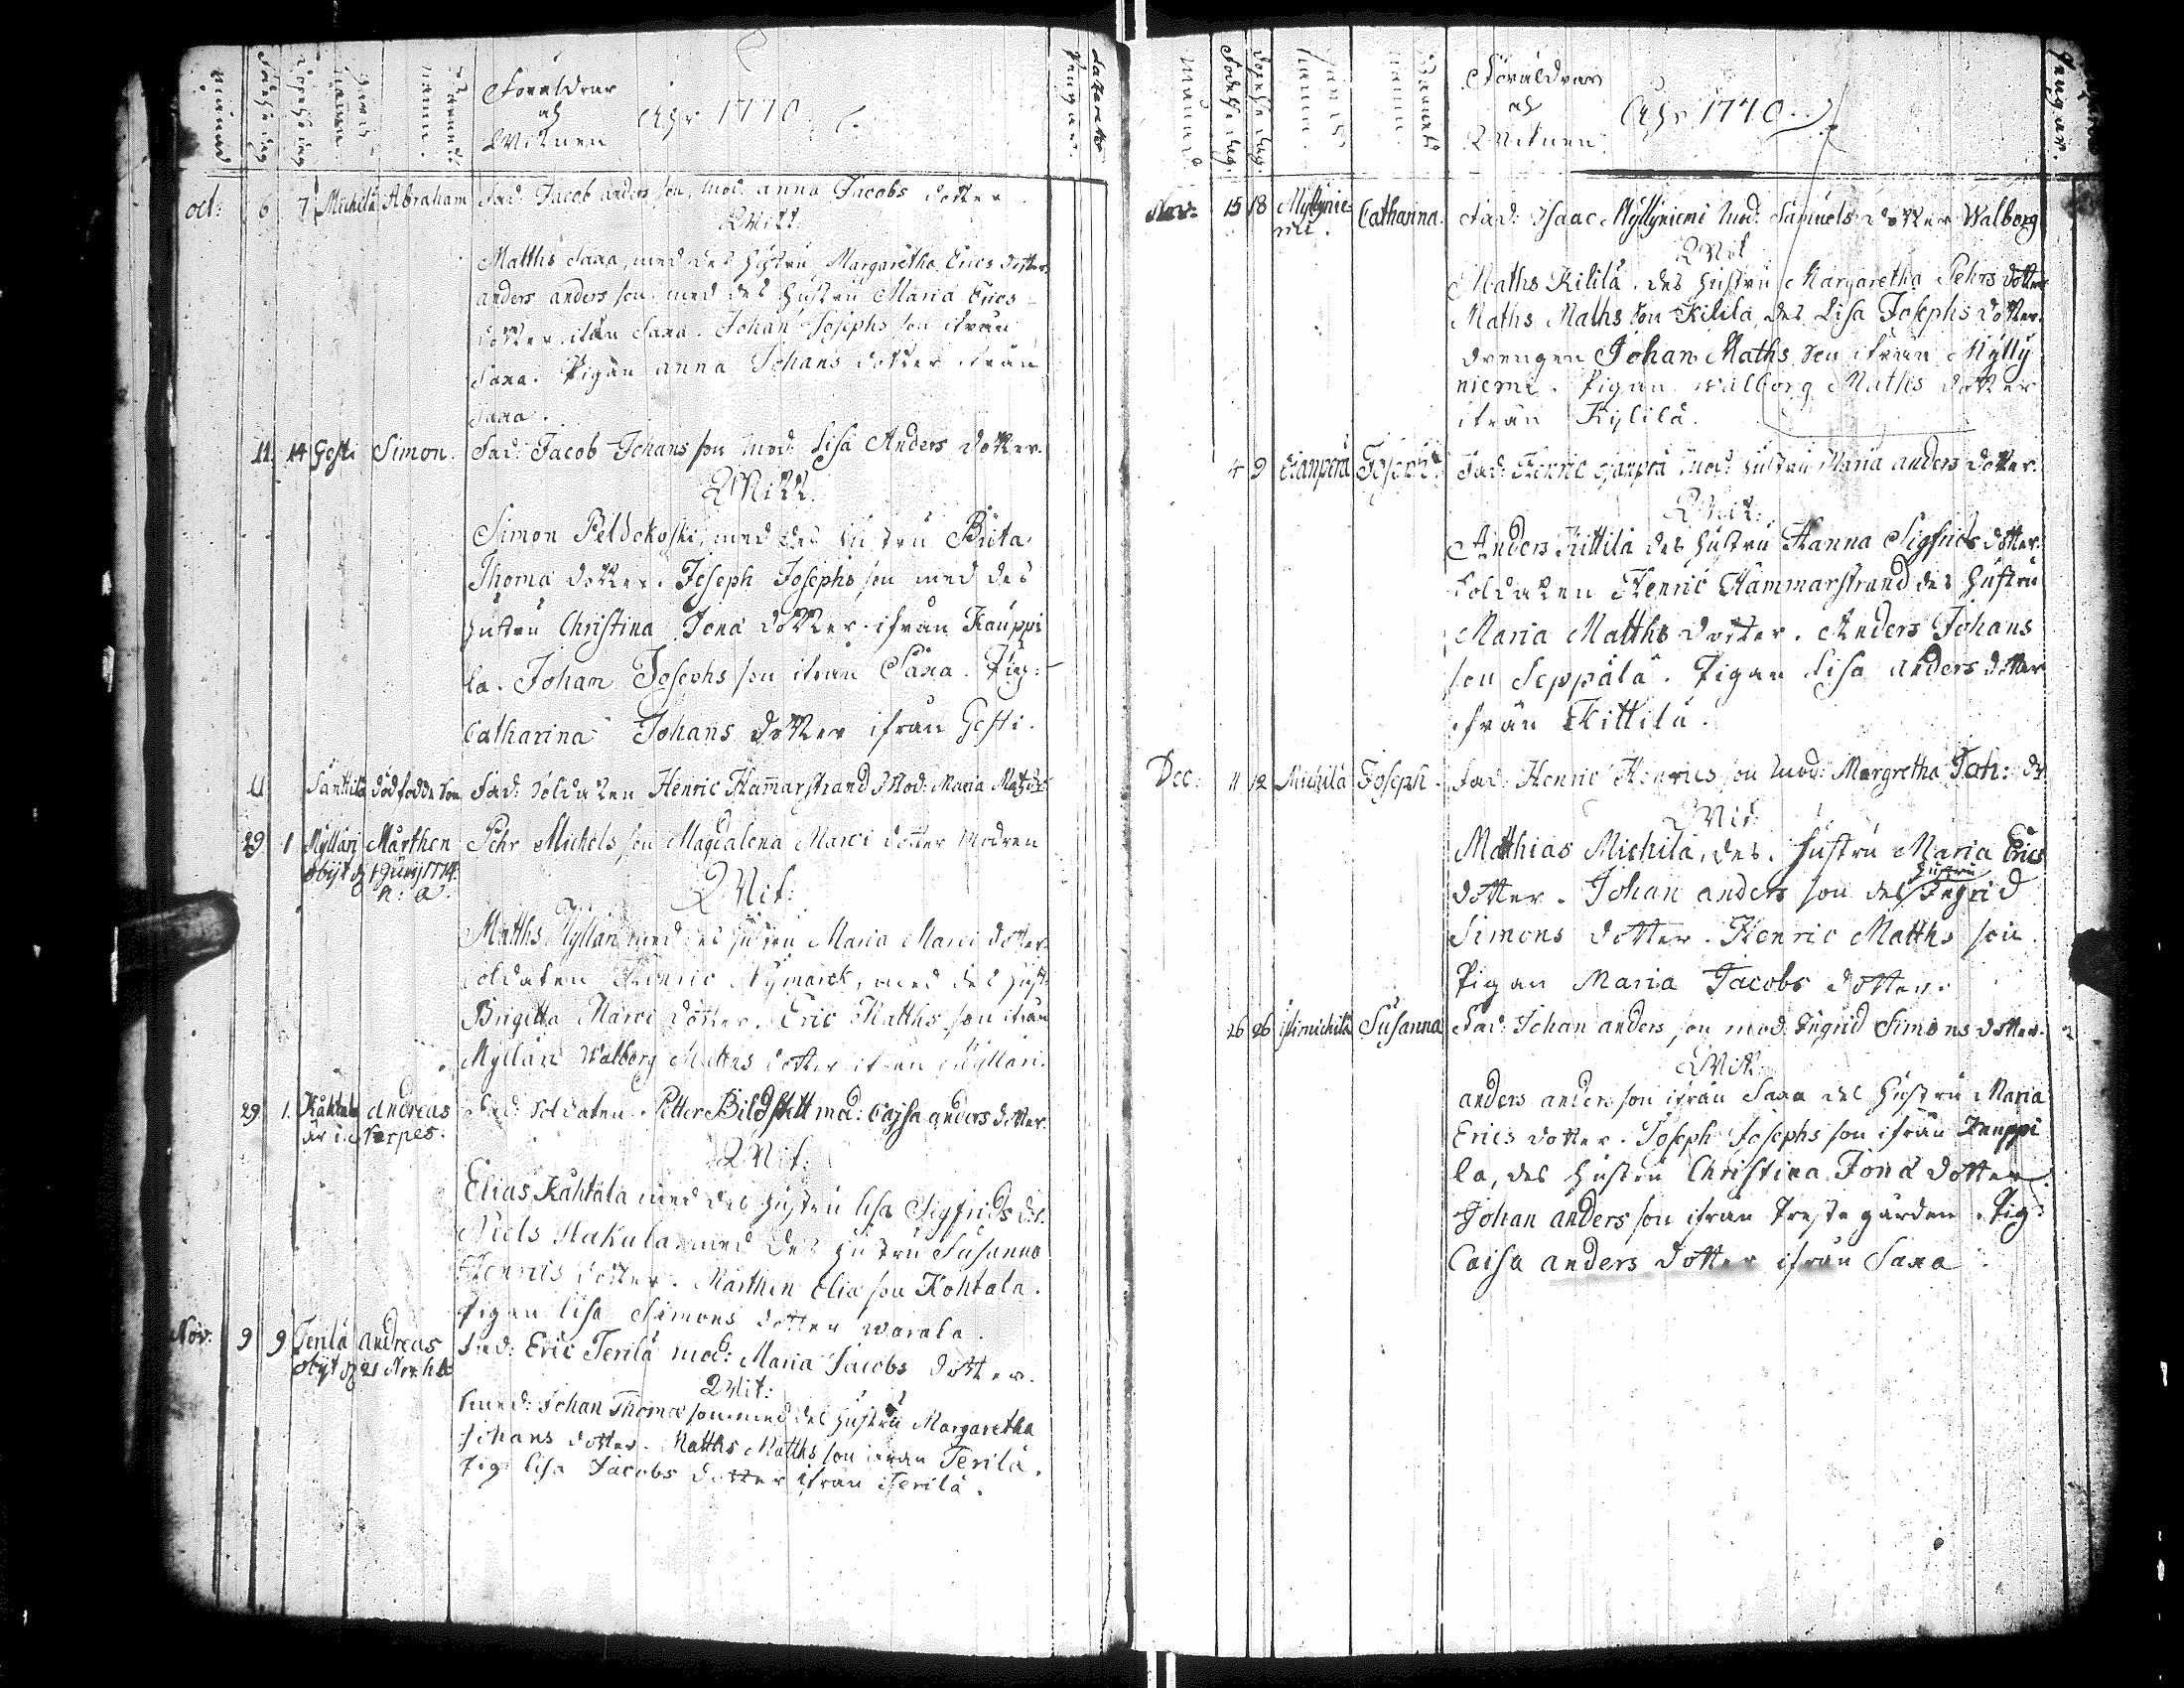 Månad
Födelse dag
Döpelse dag
Byns namn.
Barnets namn.
Föräldrar
och
Witnen
Åhr 1770.
oct: 6 7 Michilä Abraham Fad: Jacob anders son, mod: anna Jacobs dotter.
Witt:
Matths Saxa, med des hustru Margaretha Erics dotter
anders anders son, med des hustru Maria Erics
dotter ifrån Saxa. Johan Josephs son ifrån
Saxa. Pigan anna Johans dotter ifrån
Saxa.
11. 14 Gesti Simon. Fad: Jacob Johans son mod: Lisa Anders dotter.
Witt.
Simon Peldokoski, med des hustru Brita
Thomæ dotter. Joseph Josephs son med des
hustru Christina Jonæ dotter ifrån Kauppi
la. Johan Josephs son ifrån Saxa. Pig:
Catharina Johans dotter ifrån Gesti.
11 Santtila dödfödde son Fad: soldaten Henric Hammarstrand Mod: Maria
29 1 Myllari Mårthen Pehr Michels son Magdalena Marci dotter Modren
obijt d 1 Junij 1774.
h: a.
Wit:
Matths Myllari med des hustru Maria Marci dotter
soldaten Henric Nymarck, med des hust:
Brigitta Marci dotter. Eric Matths son ifrån
Myllari Walborg Matths dotter ifrån Myllari.
29 1. Kåhtala Andreas Fad: soldaten Petter Bildstett mod: Cajsa anders dotter.
är i Nerpes.
Wit:
Elias Kåhtala med des hustru Lisa Sigfrids dot.
Niels Hakula med des hustru Susanna
Henrics dotter. Mårthen Eliæ son Kohtala.
Pigan Lisa Simons dotter Warala.
Nov: 9 9 Terila Andreas Fad: Eric Terilä mod: Maria Jacobs dotter.
obijt d 21 Nov. h. a.
Wit:
Johan Thomæ son med des hustru Margaretha
Johans dotter. Matths Matths son ifrån Terilä.
Pig: Lisa Jacobs dotter ifrån Terilä.
Månad
Födelse dag.
Döpelse dag.
namn.
Barnets namn
Föräldrar
och
Witnen.
Åhr 1770.
Nov: 15 18 Myllynie Catharina. Fad: Isaac Myllyniemi mod: Samuels dotter Walborg
mi.
Wit
Maths Kililä. des hustru Margaretha Pehrs dotter
Maths Maths son Kilila, des Lisa Josephs dotter.
drengen Johan Maths son ifrån Mylly
niemi. Pigan Walborg Maths dotter
ifrån Kylilä.
4 9 Joseph. Fad: Henric mod: hustru Maria anders dotter.
Wit:
Anders Kittila des hustru Hanna Sigfrids dotter.
soldaten Henric Hammarstrand des hustru
Maria Matths dotter. Anders Johans
son Seppälä. Pigan Lisa anders dotter
ifrån Kittilä.
Dec: 11 12 Michilä Joseph. Fad: Henric Henrics son mod: Margretha Joh: dr
Wit:
Matthias Michila, des hustru Maria Erics
dotter. Johan anders son des hustru Ingrid
Simons dotter. Henric Matths son.
Pigan Maria Jacobs dotter.
26 26 isomichilä Susanna Fad: Johan anders son mod: Ingrid Simons dotter.
Wit:
anders anders son ifrån Saxa des hustru Maria
Erics dotter. Joseph Josephs son ifrån Kauppi
la, des hustru Christina Jonæ dotter
Johan anders son ifrån Preste gården. Pig:
Caisa anders dotter ifrån Saxa